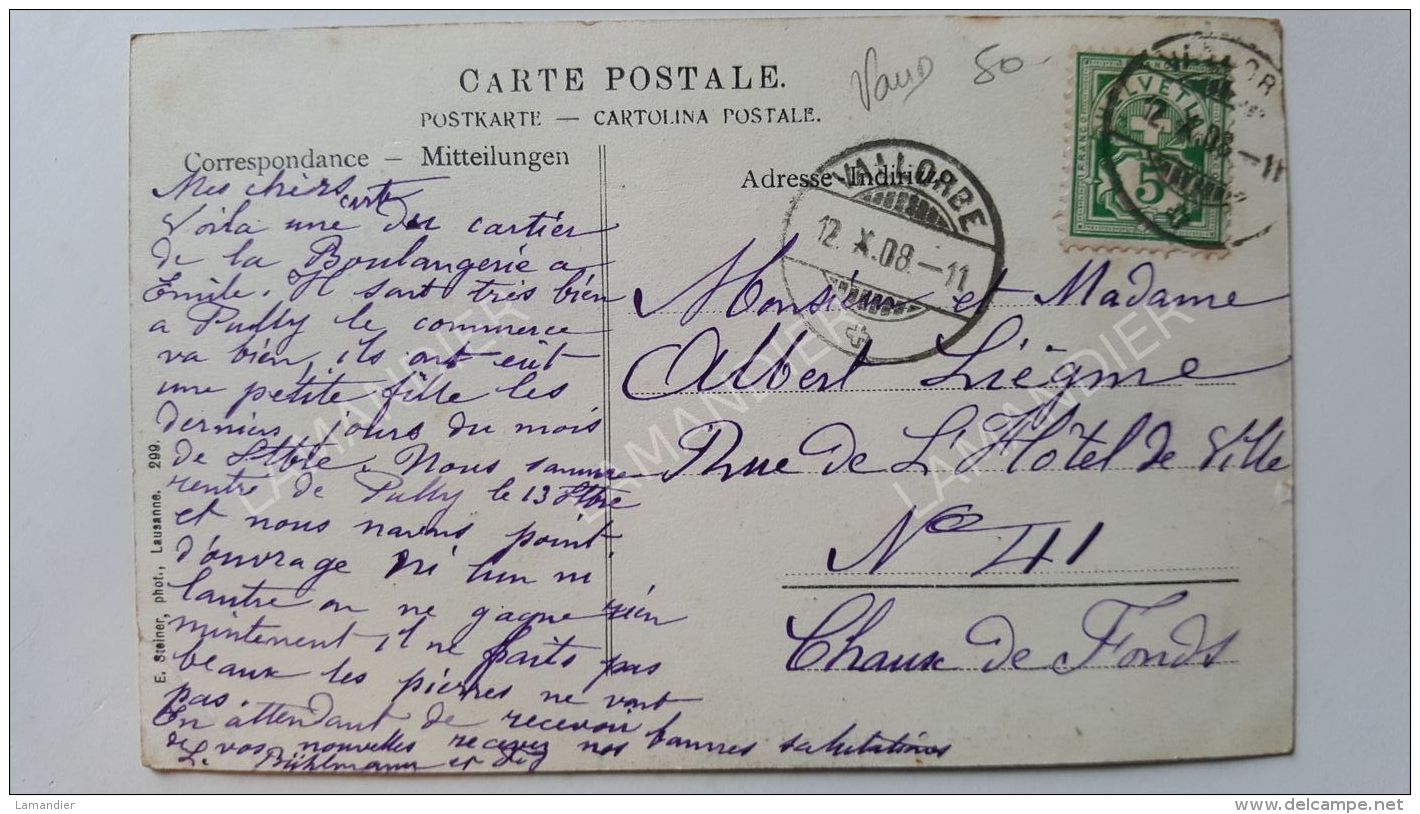 CARTE POSTALE.
POSTKARTE — CARTOLINA POSTALE.
Vaud 50
Correspondance – Mitteilungen
Adresse – Indirizzo
VALLORBE
12. X. 08. – 11
HELVETIA
FRANCO
5
12. X. 08. – 11
Mes chers
carte
Voila une du cartier
de la Boulangerie a
Emile. Il sont très bien
a Pully le commerce
va bien, ils ont eût
une petite fille les
derniers jours du mois
de 7tbre. Nous somme
rentre de Pully le 13 7tbre
et nous navons point
d'ouvrage ni l'un ni
lautre on ne gagne rien
mintenent il ne faits pas
beaux les pierres ne vont
pas.
En attendant de recevoir
de vos nouvelles recevez nos bonnes salutations
L. Bühlmann et
Monsieur et Madame
Albert Liègme
Rue de L'Hôtel de Ville
No 41
Chaux de Fonds
E. Steiner, phot., Lausanne. 299.
LAMANDIER
LAMANDIER
LAMANDIER
Lamandier
delcampe.net